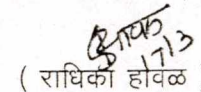 17/3
( राधिका हावळ